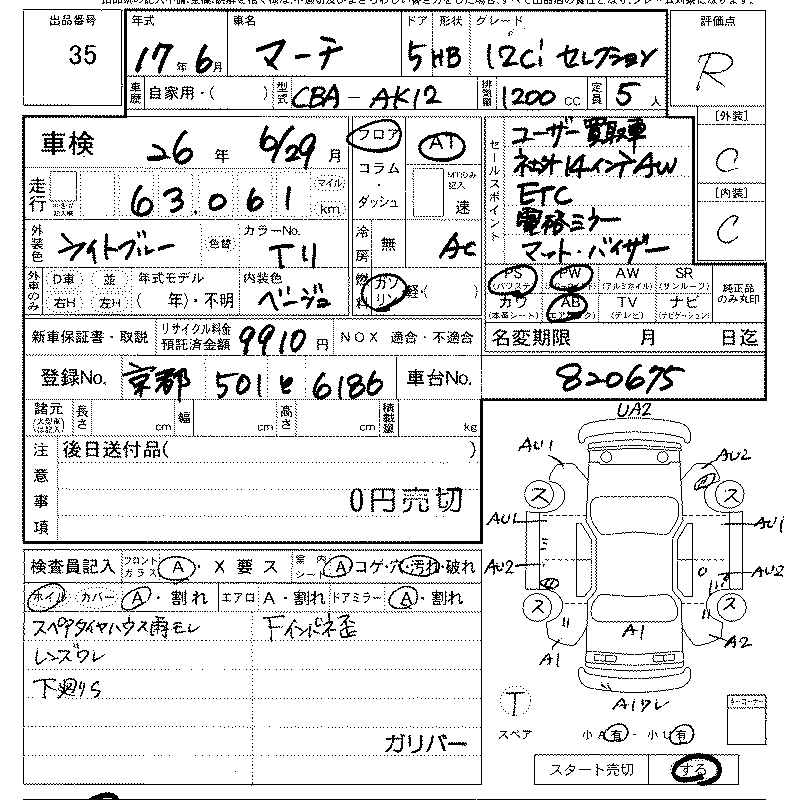 出品番号 年式 車名 ドア 形状 グレード 評価点
35 17年6月 マーチ 5 HB 12Ci セレクション R
車歴 自家用・( ) 型式 CBA-AK12 排気量 1200 CC 定員 5人
[外装]
C
[内装]
C
車検 26年 6/29月 フロア AT
コラム・ダッシュ MTのみ記入 速
走行 63,061 マイル km
外装色 ライトブルー 色替 カラーNo. T11 冷房 無 AC
外車のみ D車 並 右H 左H 年式モデル ( 年)・不明 内装色 ベージュ 燃料 ガソリン 軽・( )
セールスポイント
ユーザー買取車
社外14インチAW
ETC
電格ミラー
マット・バイザー
PS (パワステ) PW AW (アルミホイル) SR (サンルーフ) 純正品のみ丸印
カワ (本革シート) AB TV (テレビ) ナビ (ナビゲーション)
新車保証書・取説 リサイクル料金預託済金額 9910円 NOX 適合・不適合
名変期限 月 日迄
登録No. 京都 501 と 6186 車台No. 820675
諸元 長さ cm 幅 cm 高さ cm 積載量 kg
注意事項 後日送付品( )
0円売切
検査員記入 フロントガラス A・X 要 ス 室内シート A コゲ・穴・汚れ・破れ
ホイル カバー A・割れ エアロ A・割れ ドアミラー A・割れ
スペアタイヤハウス雨モレ Fインパネ歪
レンズワレ
下廻りS
ガリバー
UA2
AU1 AU2
ス ス
AU1 AU1
AU2 AU2
ス ス
A1 A1 A2
A1ワレ
T
スペア 小A有・小U有
キーコーナー
スタート売切 する